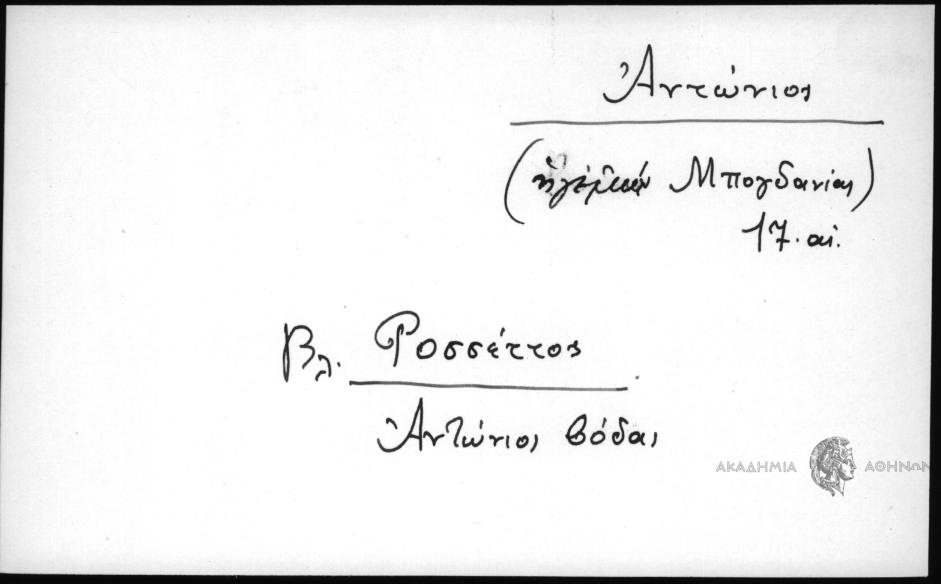 Ἀντώνιος
(ἡγεμὼν Μπογδανίας)
17. αἰ.
Βλ. Ροσσέττος
Ἀντώνιος βόδας
ΑΚΑΔΗΜΙΑ ΑΘΗΝΩΝ